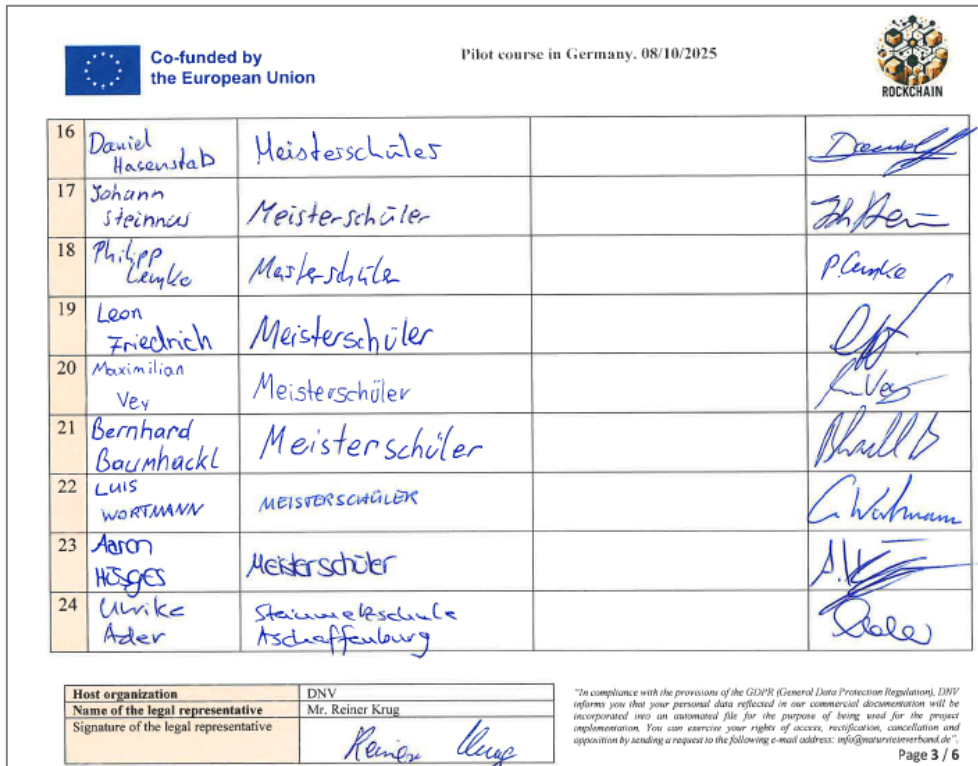 Co-funded by
the European Union
Pilot course in Germany. 08/10/2025
ROCKCHAIN
16 Daniel
Hasenstab
Meisterschüler
17 Johann
Steinnus
Meisterschüler
18 Philipp
Lemke
Masterschüler
P. Lemke
19 Leon
Friedrich
Meisterschüler
20 Maximilian
Vey
Meisterschüler
Vey
21 Bernhard
Baumhackl
Meisterschüler
22 LUIS
WORTMANN
MEISTERSCHÜLER
Wortmann
23 Aaron
HÜSGES
Meisterschüler
24 Ulrike
Ader
Steinmetzschule
Aschaffenburg
Host organization DNV
Name of the legal representative Mr. Reiner Krug
Signature of the legal representative
Reiner Krug
"In compliance with the provisions of the GDPR (General Data Protection Regulation), DNV
informs you that your personal data reflected in our commercial documentation will be
incorporated into an automated file for the purpose of being used for the project
implementation. You can exercise your rights of access, rectification, cancellation and
opposition by sending a request to the following e-mail address: info@natursteinverband.de".
Page 3 / 6